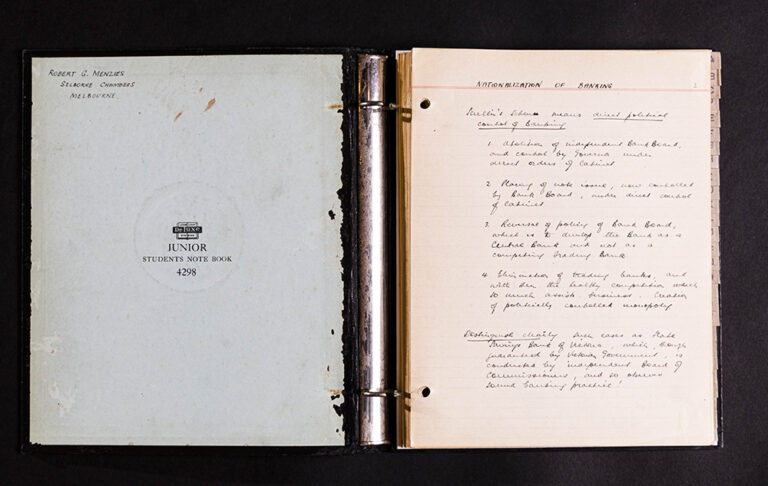 ROBERT G. MENZIES
SELBORNE CHAMBERS
MELBOURNE.
De Luxe
JUNIOR
STUDENTS NOTE BOOK
4298
NATIONALIZATION OF BANKING
Scullin's Scheme means direct political
control of Banking
1. Abolition of independent Bank Board,
and control by Governor under
direct orders of Cabinet
2. Placing of note issue, now controlled
by Bank Board, under direct control
of Cabinet
3. Reversal of policy of Bank Board,
which is to develop the Bank as a
Central Bank and not as a
competing trading Bank
4. Elimination of trading banks, and
with them the healthy competition which
so much assists business. Creation
of politically controlled monopoly
Distinguish clearly such cases as State
Savings Bank of Victoria, which, though
guaranteed by Victorian Government, is
conducted by independent Board of
Commissioners, and so observes
sound banking practice!